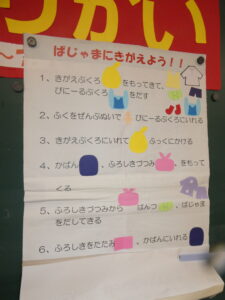 つかい
ぱじゃまにきがえよう！！
1、きがえぶくろ をもってきて、
びにーるぶくろ をだす
2、ふくをぜんぶぬいで びにーるぶくろにいれる
3、きがえぶくろにいれて ふっくにかける
4、かばん 、ふろしきづつみ 、をもって
くる
5、ふろしきづつみから ぱんつ 、ぱじゃま
をだしてきる
6、ふろしきをたたみ 、かばんにいれる